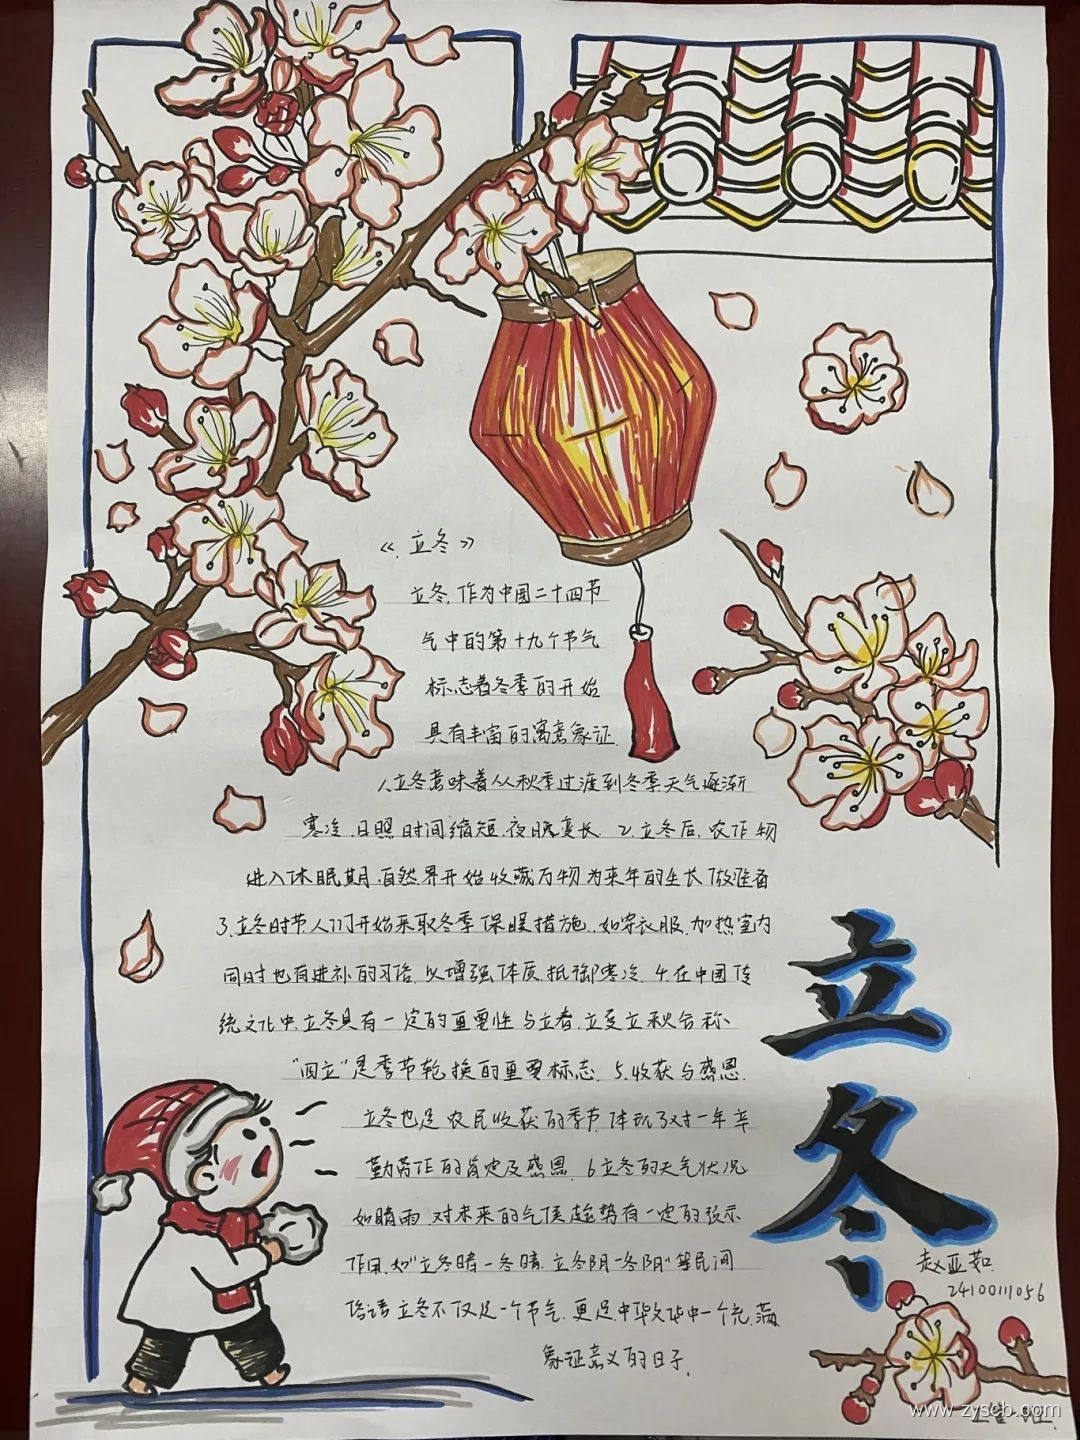 《立冬》
立冬,作为中国二十四节
气中的第十九个节气
标志着冬季的开始
具有丰富的寓意象征.
1.立冬意味着从秋季过渡到冬季天气逐渐
寒冷.日照时间缩短.夜晚变长. 2.立冬后.农作物
进入休眠期.自然界开始收藏万物为来年的生长做准备
3.立冬时节人们开始采取冬季保暖措施.如穿衣服.加热室内
同时也有进补的习俗.以增强体质.抵御寒冷. 4.在中国传
统文化中.立冬具有一定的重要性与立春.立夏立秋合称、
"四立"是季节轮换的重要标志. 5.收获与感恩.
立冬也是农民收获的季节.体现了对一年辛
勤劳作的肯定及感恩. 6立冬的天气状况
如晴雨.对未来的气候趋势有一定的预示
作用.如"立冬晴一冬晴.立冬阴一冬阴"等民间
俗语立冬不仅是一个节气.更是中华文化中一个充满
象征意义的日子.
立冬
赵亚茹.
24100111056
www.zyscb.com